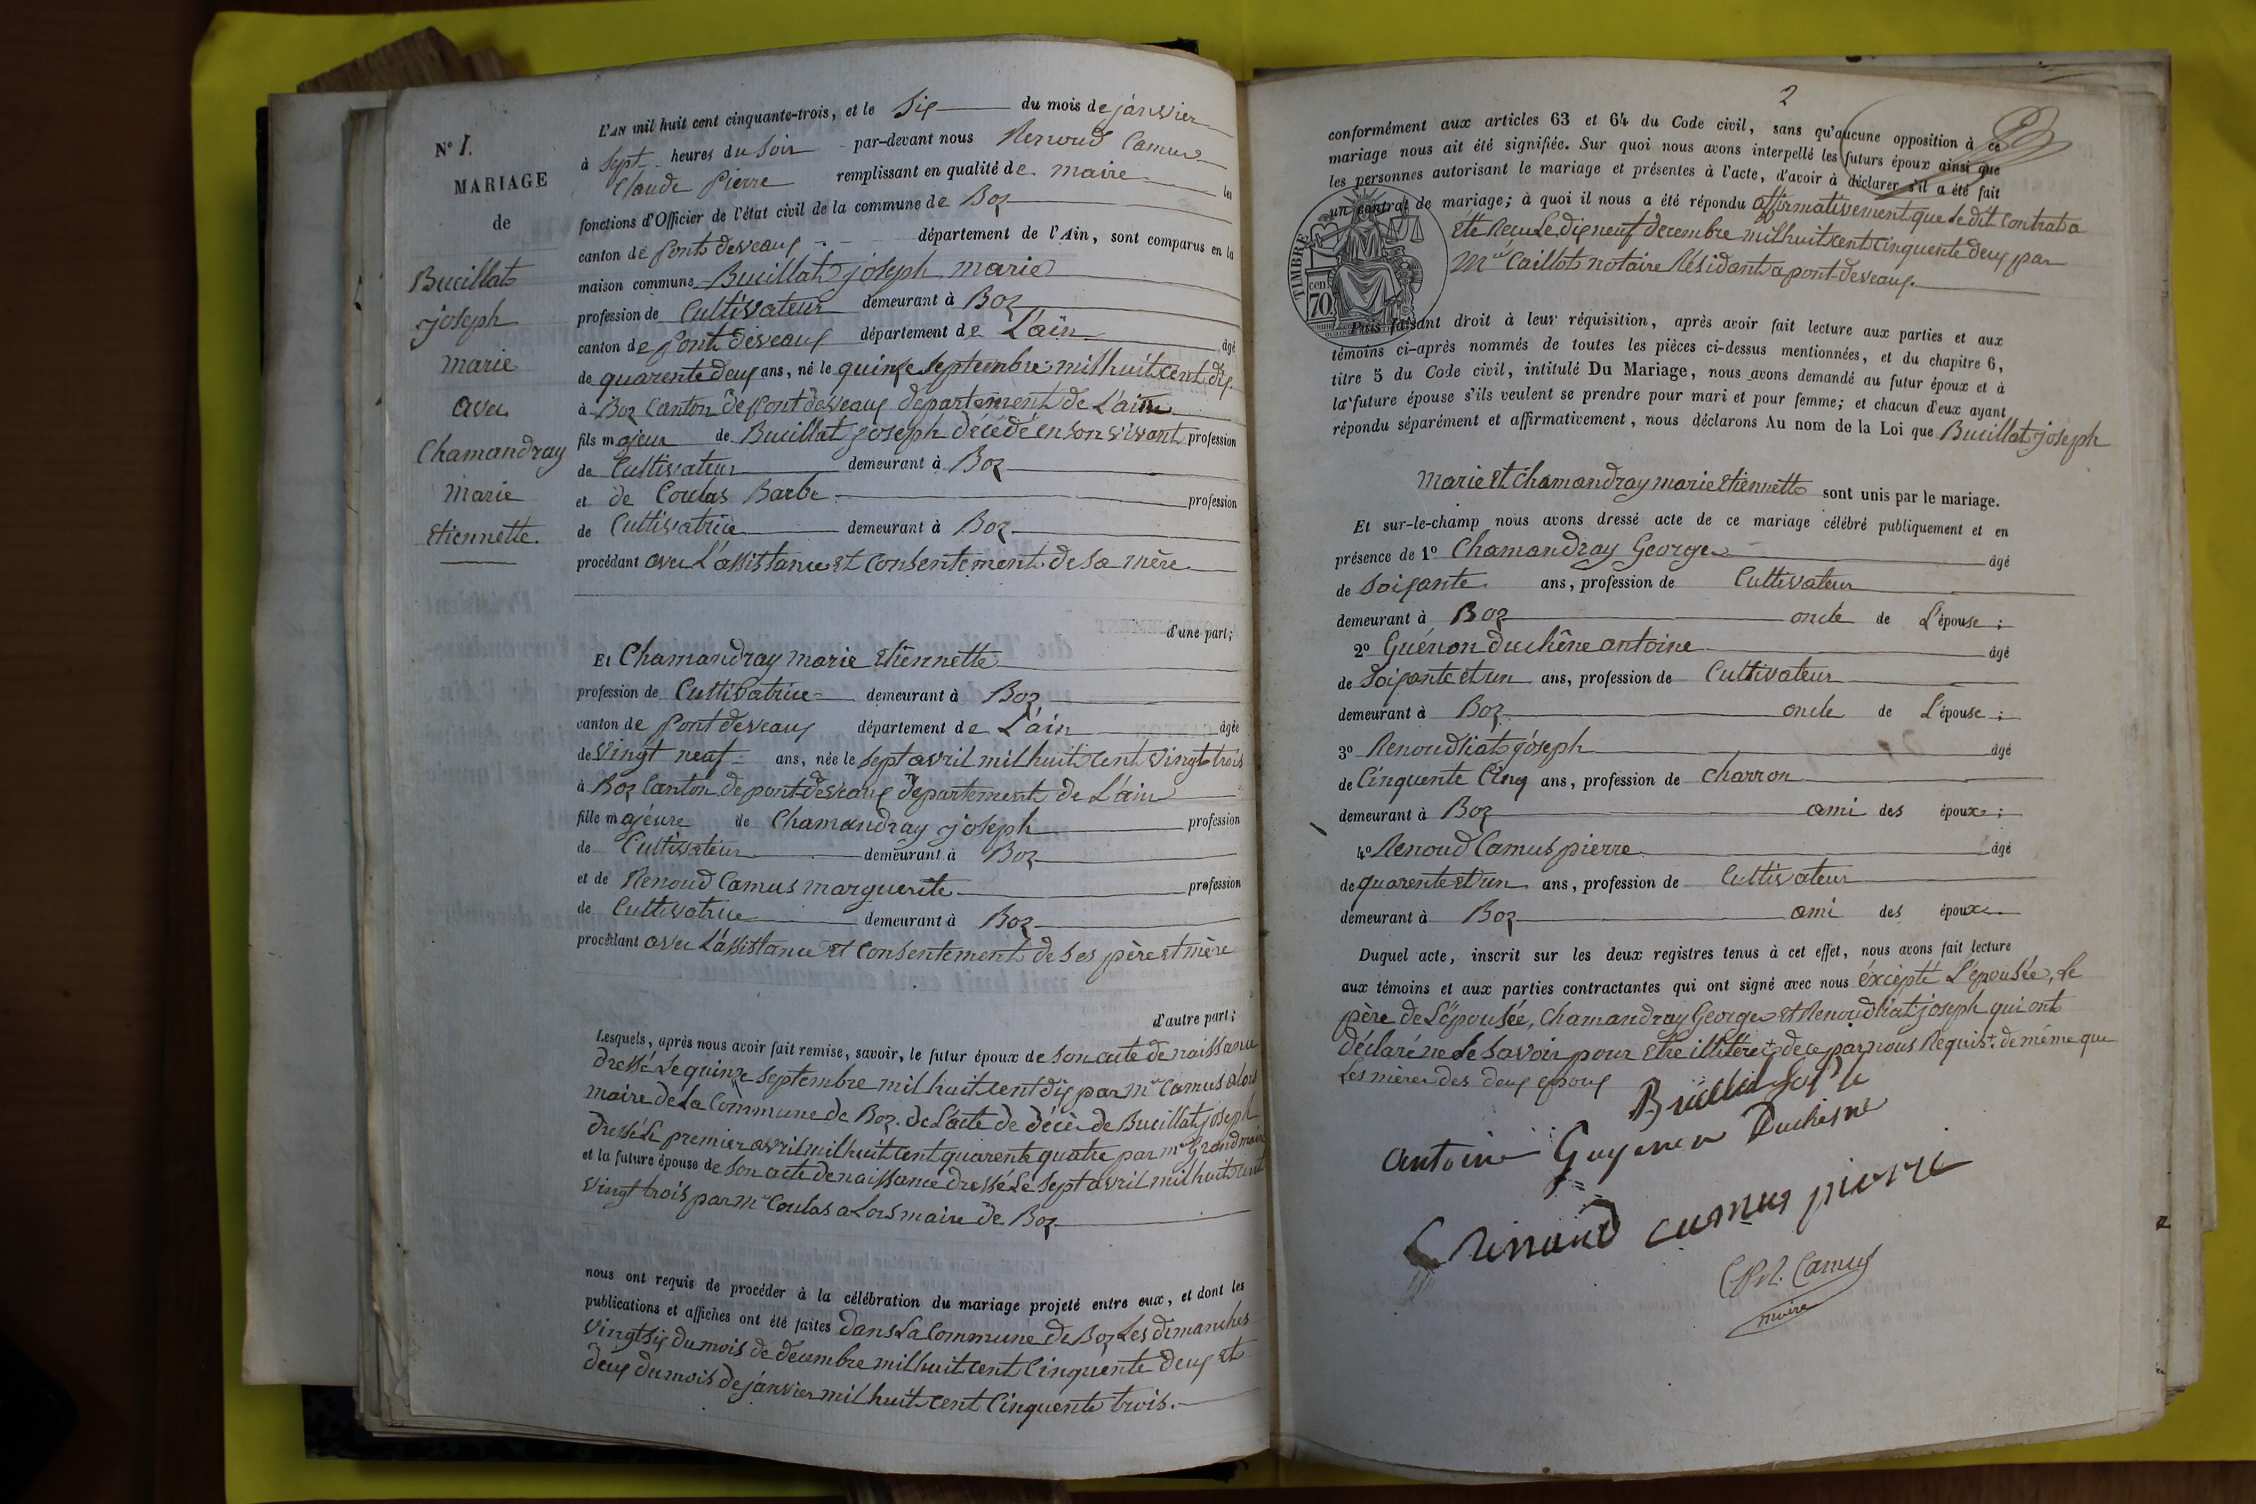 N° 1.
MARIAGE
de
Bucillat
joseph
marie
avec
Chamandray
marie
etiennette.
L'AN mil huit cent cinquante-trois, et le Six du mois de janvier
à Sept heures du Soir par-devant nous Renoud Camus
Claude Pierre remplissant en qualité de maire les
fonctions d'Officier de l'état civil de la commune de Boz
canton de Pontdeveaux département de l'Ain, sont comparus en la
maison commune Bucillat joseph marie
profession de Cultivateur demeurant à Boz
canton de Pontdeveaux département de L'ain âgé
de quarente deux ans, né le quinze septembre mil huit cent dix
à Boz Canton de Pontdeveaux département de L'ain
fils majeur de Bucillat joseph décédé en son vivant profession
de Cultivateur demeurant à Boz
et de Coulas Barbe profession
de Cultivatrice demeurant à Boz
procédant avec L'assistance et consentement de sa mère
d'une part;
Et Chamandray marie etiennette
profession de Cultivatrice demeurant à Boz
canton de Pontdeveaux département de L'ain âgée
de vingt neuf ans, née le sept avril mil huit cent vingt trois
à Boz Canton de pontdeveaux département de L'ain
fille majeure de Chamandray joseph profession
de Cultivateur demeurant à Boz
et de Renoud Camus marguerite profession
de Cultivatrice demeurant à Boz
procédant avec L'assistance et consentement de ses père et mère
d'autre part;
Lesquels, après nous avoir fait remise, savoir, le futur époux de son acte de naissance
dressé Le quinze septembre mil huit cent dix par mr Camus alors
maire de La Commune de Boz. de L'acte de décè de Bucillat joseph
dressé Le premier avril mil huit cent quarente quatre par mr Grand maire
et la future épouse de son acte de naissance dressé Le sept avril mil huit cent
vingt trois par mr Coulas alors maire de Boz
nous ont requis de procéder à la célébration du mariage projeté entre eux, et dont les
publications et affiches ont été faites dans La Commune de Boz Les dimanches
vingt six du mois de décembre mil huit cent Cinquente deux et
deux du mois de janvier mil huit cent Cinquente trois.
2
conformément aux articles 63 et 64 du Code civil, sans qu'aucune opposition à ce
mariage nous ait été signifiée. Sur quoi nous avons interpellé les futurs époux ainsi que
les personnes autorisant le mariage et présentes à l'acte, d'avoir à déclarer s'il a été fait
un contrat de mariage; à quoi il nous a été répondu affirmativement que Le dit Contrat a
été Reçu Le dix neuf decembre mil huit cent cinquente deux par
Me Caillot notaire Résidant a pontdeveaux.
TIMBRE
cen
70
Puis faisant droit à leur réquisition, après avoir fait lecture aux parties et aux
témoins ci-après nommés de toutes les pièces ci-dessus mentionnées, et du chapitre 6,
titre 5 du Code civil, intitulé Du Mariage, nous avons demandé au futur époux et à
la future épouse s'ils veulent se prendre pour mari et pour femme; et chacun d'eux ayant
répondu séparément et affirmativement, nous déclarons Au nom de la Loi que Bucillat joseph
Marie Et Chamandray marie etiennette sont unis par le mariage.
Et sur-le-champ nous avons dressé acte de ce mariage célébré publiquement et en
présence de 1° Chamandray George âgé
de Soixante ans, profession de Cultivateur
demeurant à Boz oncle de L'épouse;
2° Guénon duchêne antoine âgé
de Soixante et un ans, profession de Cultivateur
demeurant à Boz oncle de L'épouse;
3° Renoudliat joseph âgé
de Cinquente Cinq ans, profession de Charron
demeurant à Boz ami des époux;
4° Renoud Camus pierre âgé
de quarente et un ans, profession de Cultivateur
demeurant à Boz ami des époux
Duquel acte, inscrit sur les deux registres tenus à cet effet, nous avons fait lecture
aux témoins et aux parties contractantes qui ont signé avec nous éxcépté L'épousée, Le
père de L'épousée, Chamandray George et Renoudliat joseph qui ont
déclaré ne Le savoir pour Etre illitéré de ce par nous Requis. de même que
Les mères des deux epoux
Bucillat Joseph
antoine Guyenon Duchesne
Renoud camus pierre
Camus
maire